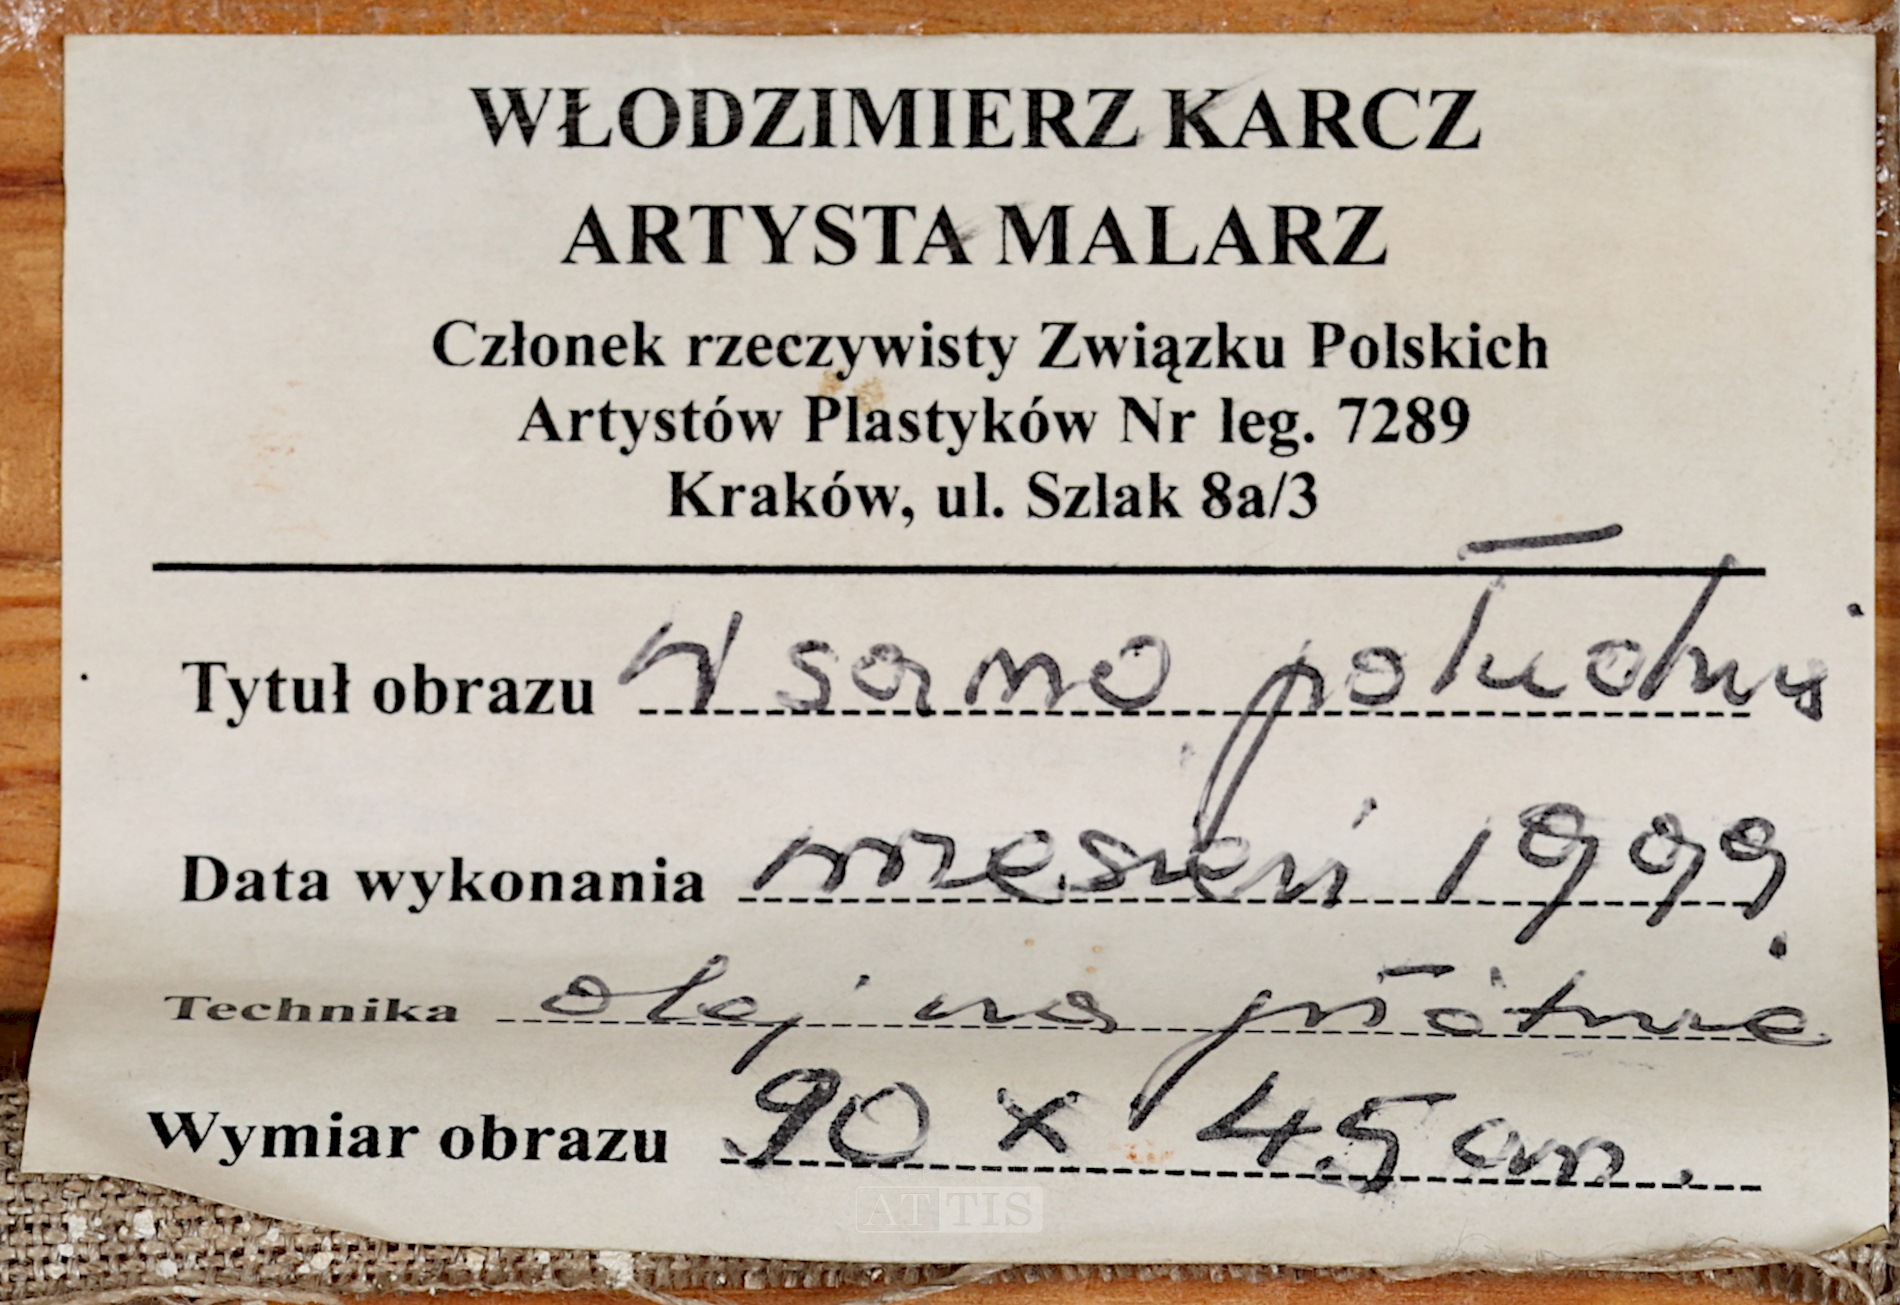 WŁODZIMIERZ KARCZ
ARTYSTA MALARZ
Członek rzeczywisty Związku Polskich
Artystów Plastyków Nr leg. 7289
Kraków, ul. Szlak 8a/3
Tytuł obrazu W samo południe
Data wykonania wrzesień 1999
Technika olej na płótnie
Wymiar obrazu 90 x 45 cm.
ATTIS